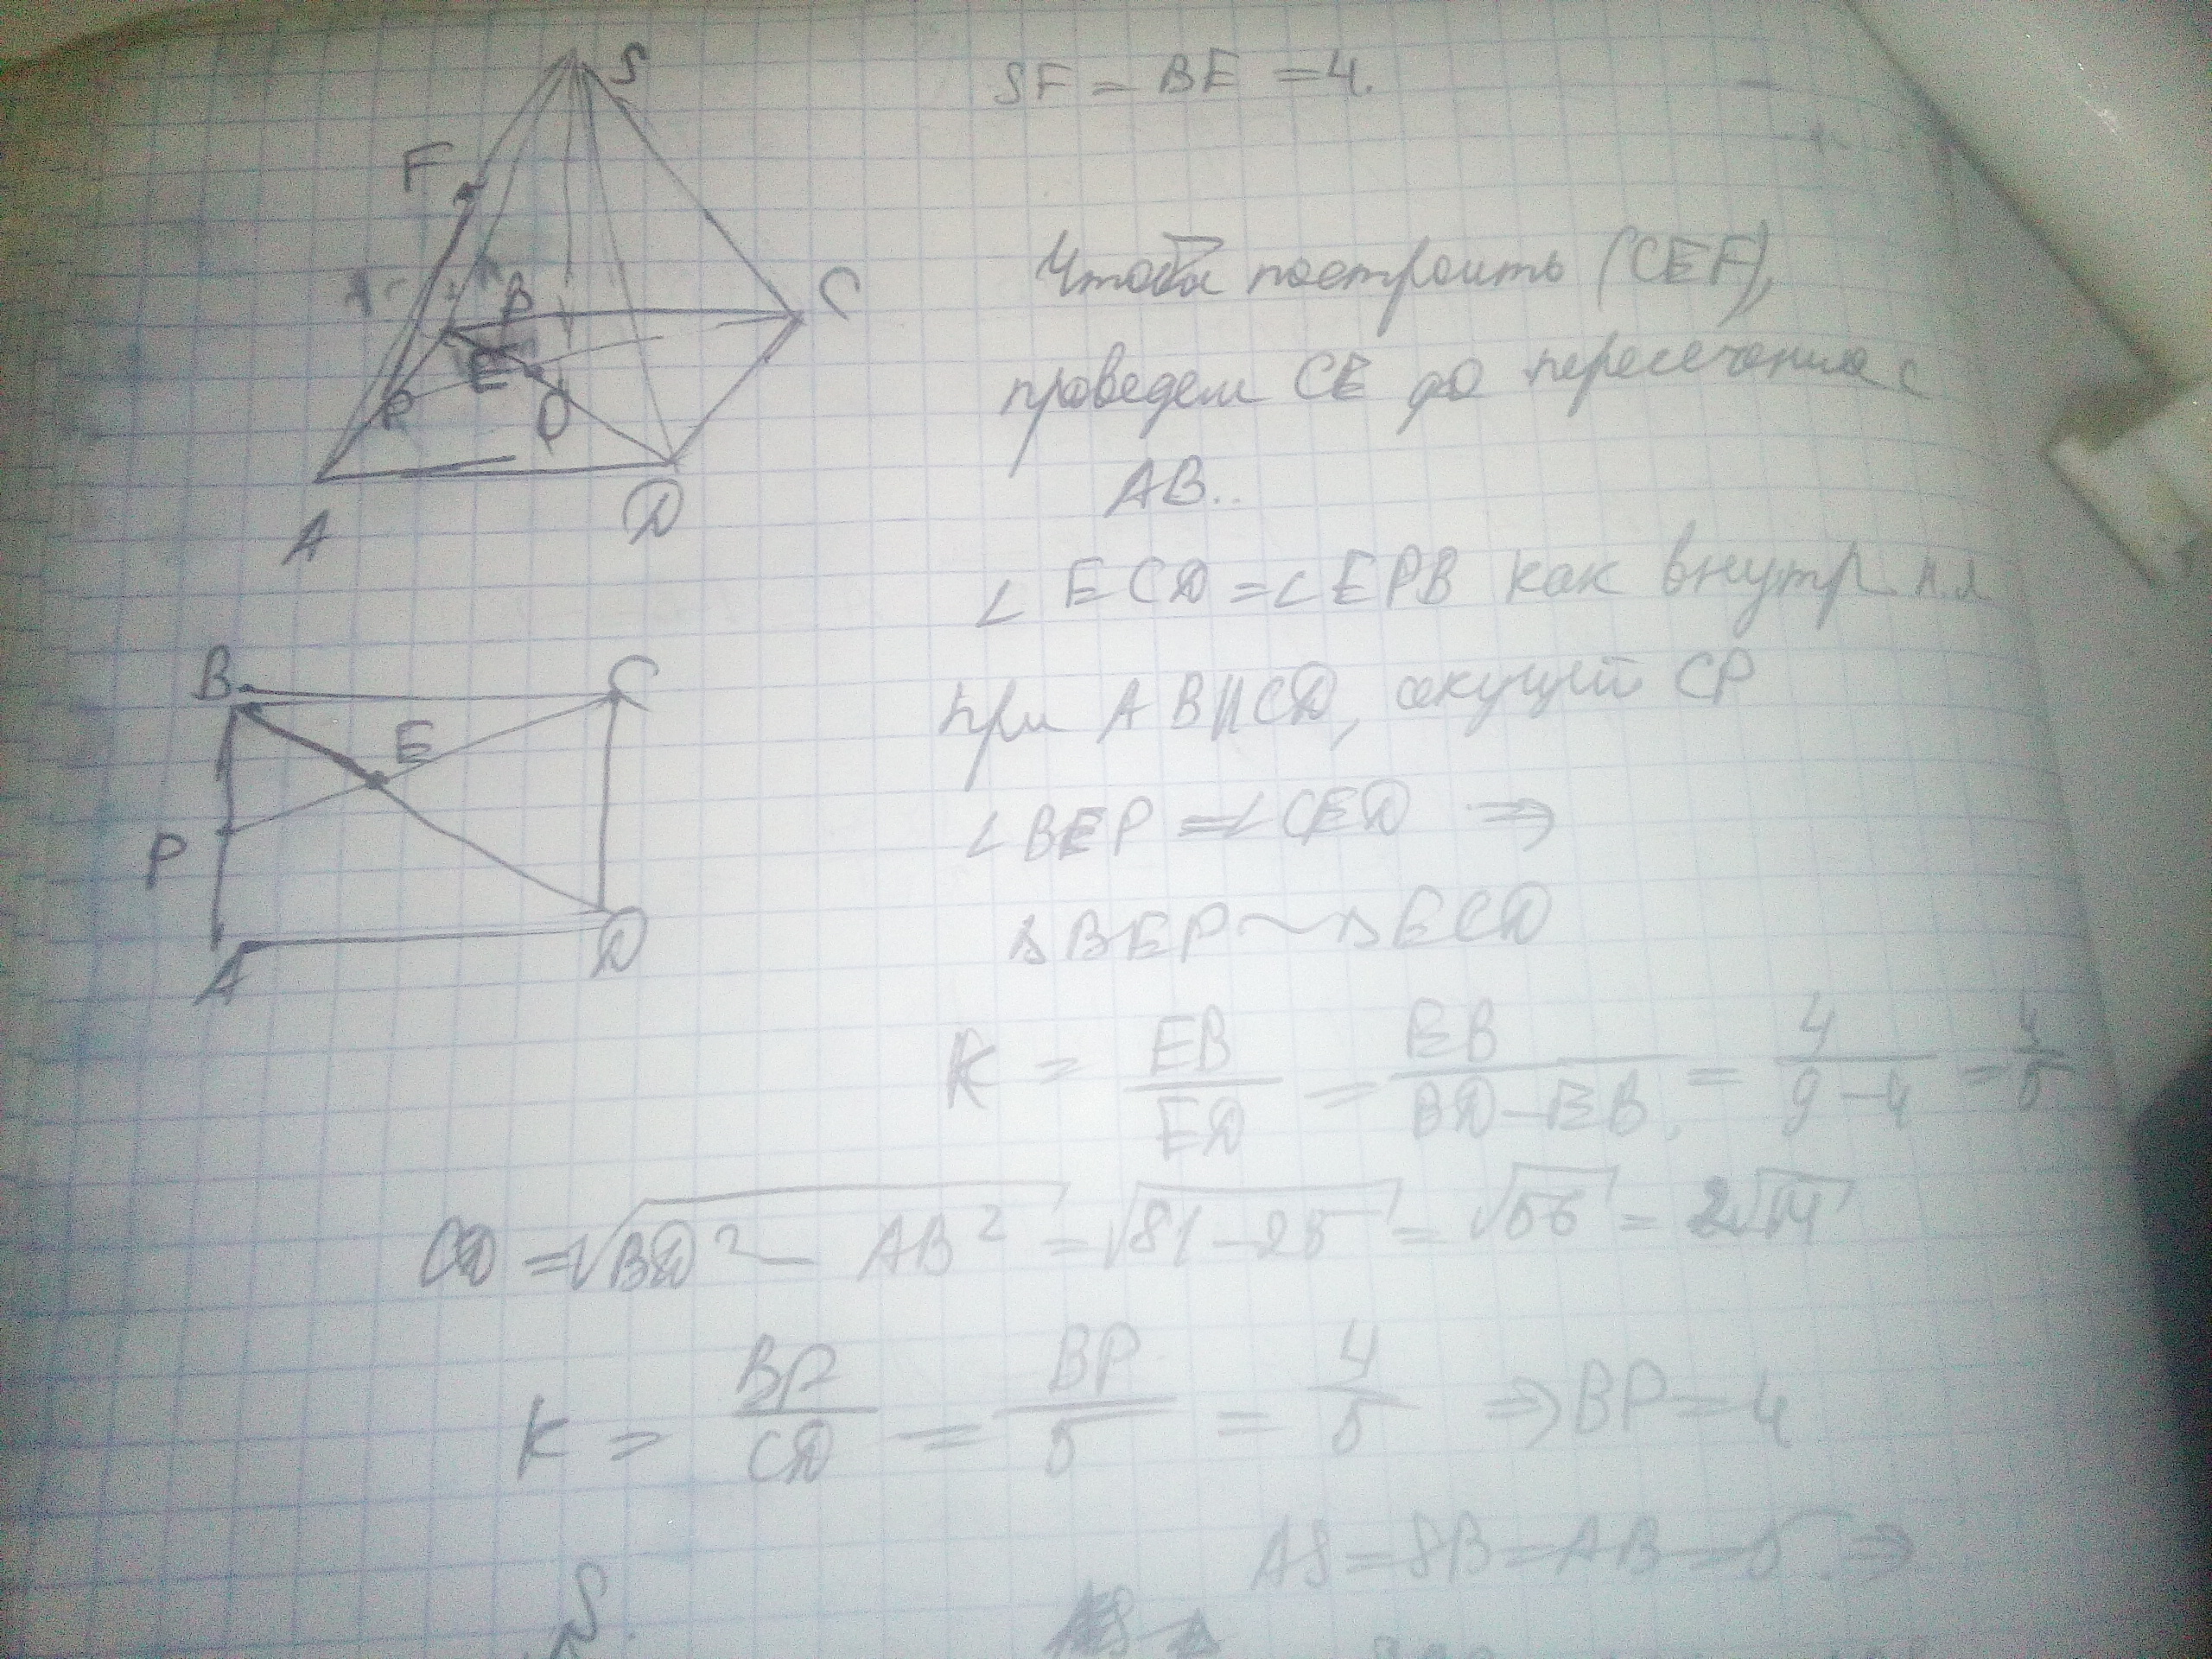 S
SF = BE = 4.
F
Чтобы построить (CEF),
B
C
проведем CE до пересечения с
E
P
O
AB..
A
D
∠ECD = ∠EPB как внутр н.л
B
C
при AB||CD, секущей CP
E
∠BEP = ∠CED ⇒
P
ΔBEP ~ ΔECD
A
D
K = EB/ED = EB/(BD-EB) = 4/(9-4) = 4/5
CD = √(BD² - AB²) = √(81-25) = √56 = 2√14
K = BP/CD = BP/5 = 4/5 ⇒ BP = 4
AS = SB = AB = 5 ⇒
S